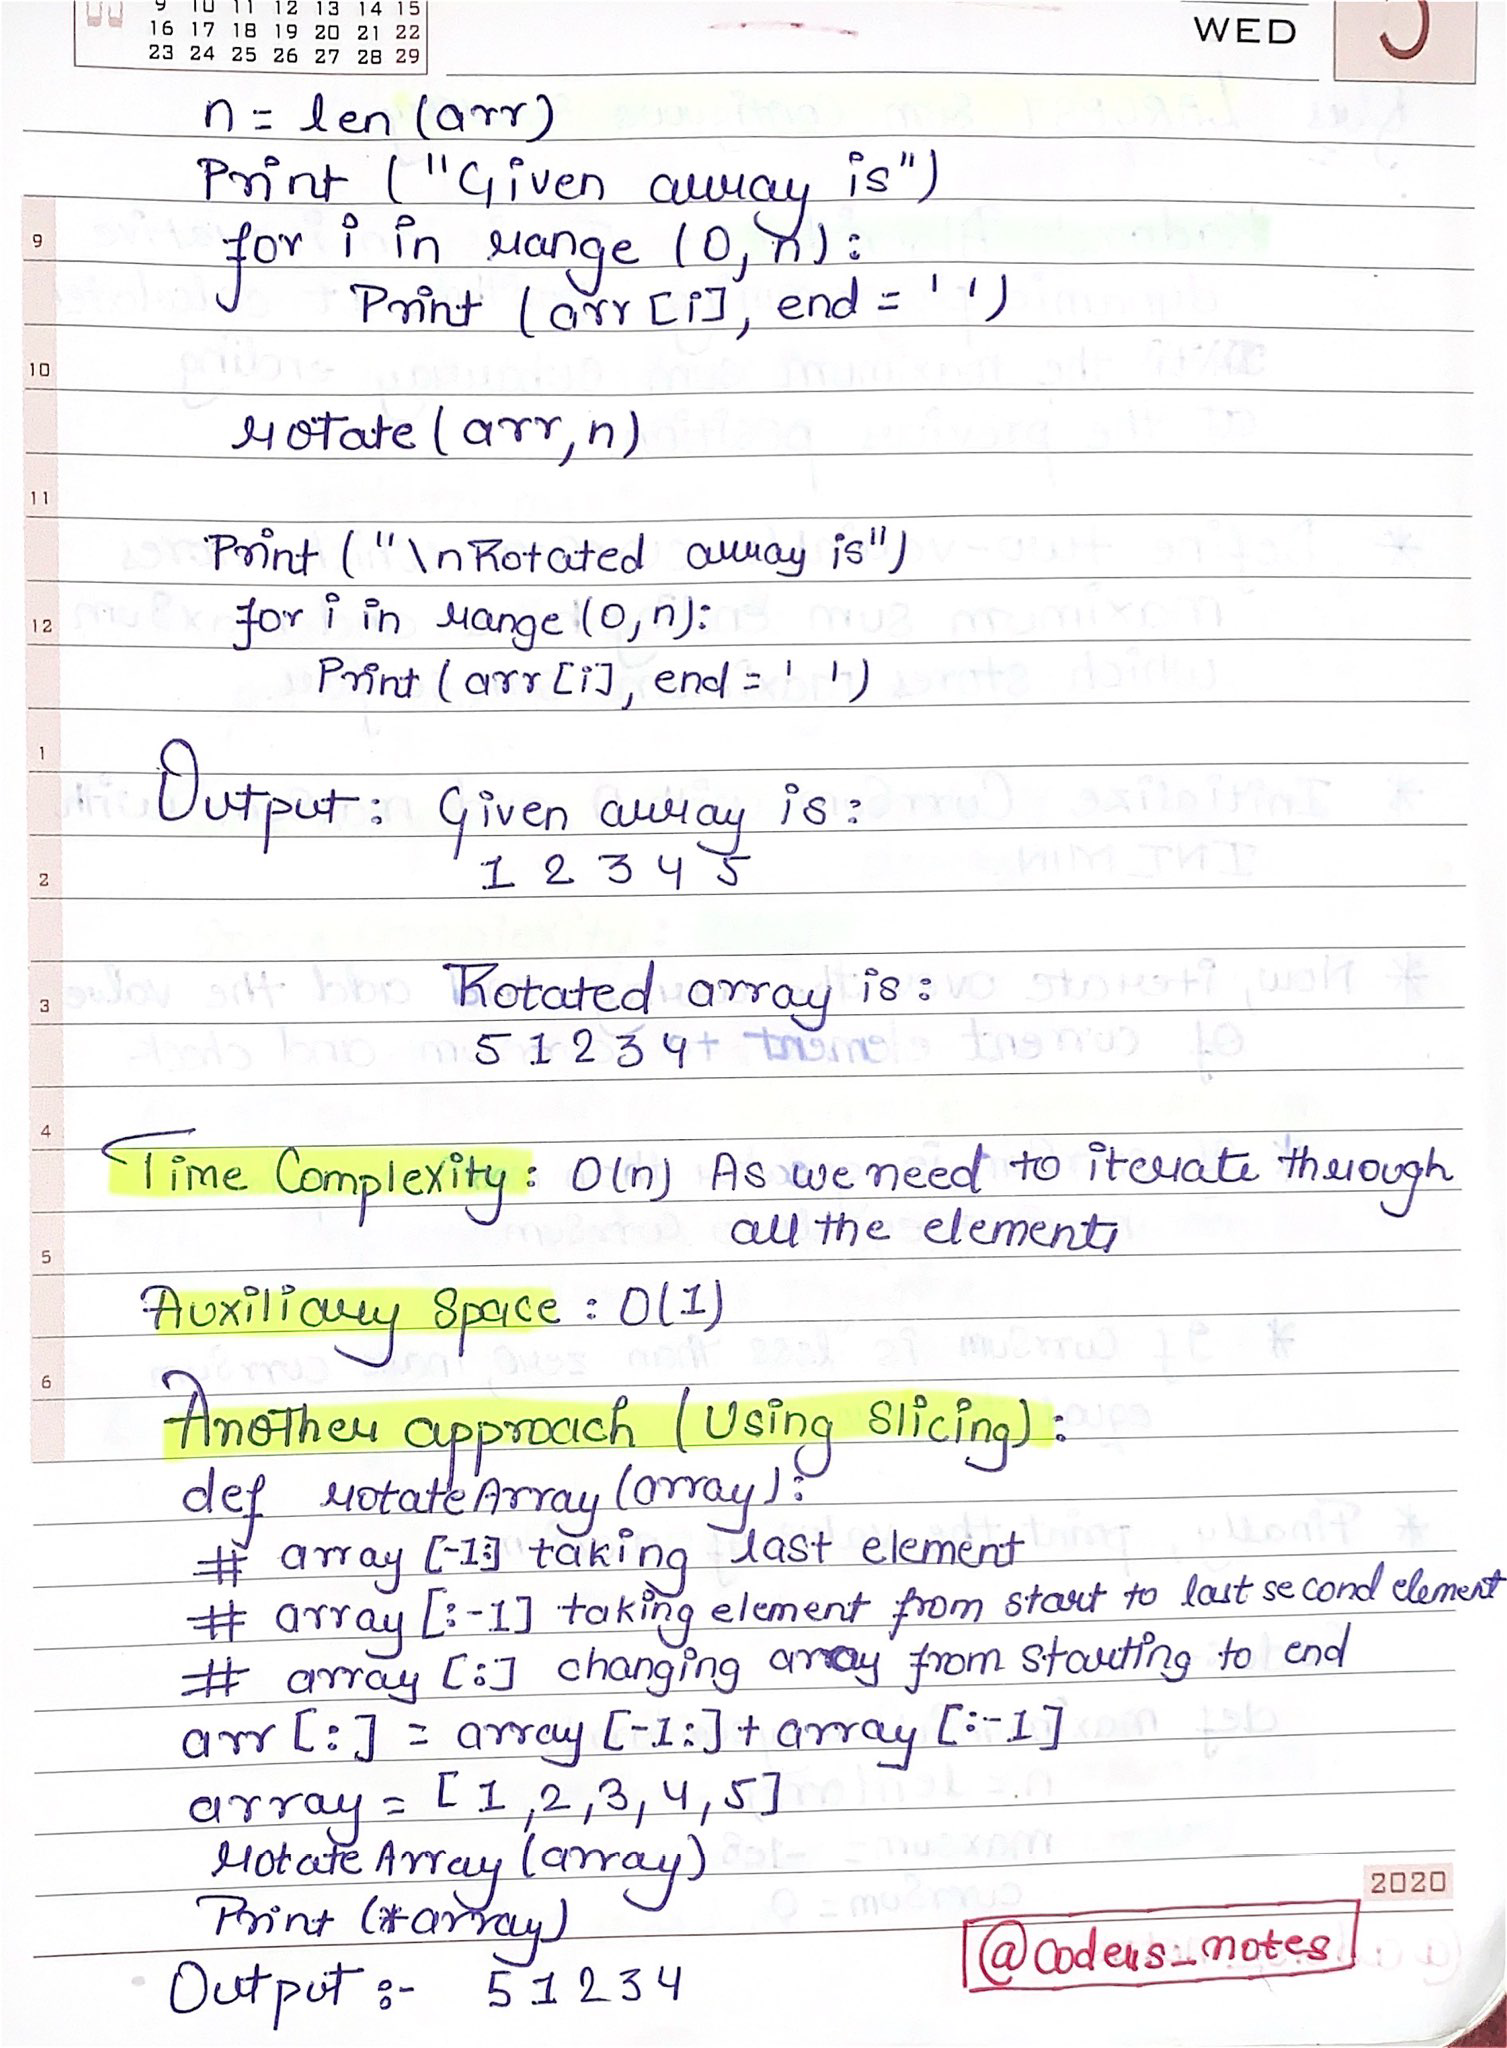 9 10 11 12 13 14 15
16 17 18 19 20 21 22
23 24 25 26 27 28 29
WED
5
n = len (arr)
Print ("Given array is")
9
for i in range (0, n):
Print (arr [i], end = ' ')
10
rotate (arr, n)
11
Print ("\n Rotated array is")
12
for i in range (0, n):
Print (arr [i], end = ' ')
1
Output: Given array is:
2
1 2 3 4 5
3
Rotated array is:
5 1 2 3 4
4
Time Complexity: O(n) As we need to iterate through
all the elements
5
Auxiliary Space : O(1)
6
Another approach (Using Slicing):
def rotateArray (array):
# array [-1:] taking last element
# array [:-1] taking element from start to last second element
# array [:] changing array from starting to end
arr [:] = array [-1:] + array [:-1]
array = [1, 2, 3, 4, 5]
rotateArray (array)
2020
Print (*array)
@coders_notes
Output :- 5 1 2 3 4